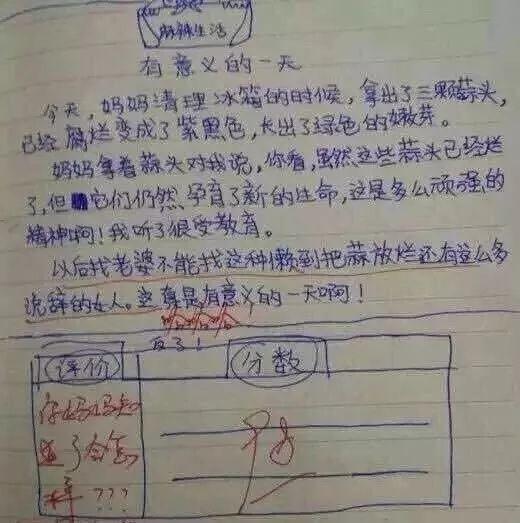 麻辣生活
有意义的一天
今天,妈妈清理冰箱的时候,拿出了三颗蒜头,
已经腐烂变成了紫黑色,长出了绿色的嫩芽。
妈妈拿着蒜头对我说,你看,虽然这些蒜头已经烂
了,但它们仍然孕育了新的生命,这是多么顽强的
精神啊!我听了很受教育。
以后找老婆不能找这种懒到把蒜放烂还有这么多
说辞的女人。这真是有意义的一天啊!
哈哈哈
反了!
评价
分数
你妈妈知
道了会怎
样???